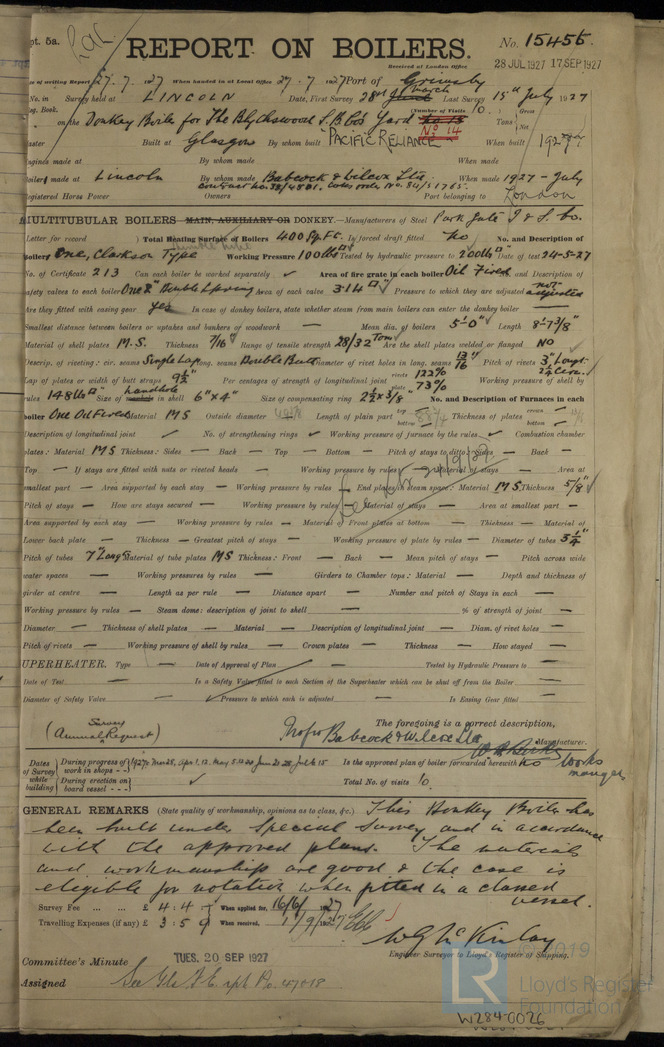 pt. 5a.
REPORT ON BOILERS.
No. 15455.
Received at London Office
28 JUL 1927 17 SEP 1927
of writing Report 27-7-1927 When handed in at Local Office 27-7-1927 Port of Grimsby
No. in Survey held at LINCOLN Date, First Survey 28th March Last Survey 15th July 1927
eg. Book. (Number of Visits 10 ) Gross
on the Donkey Boiler for The Blythswood S.B. Co's Yard No 14 Tons
PACIFIC RELIANCE
Built at Glasgow By whom built When built 1927
Engines made at By whom made When made
Boilers made at Lincoln By whom made Babcock & Wilcox Ltd When made 1927 - July
Registered Horse Power Owners Port belonging to London
MULTITUBULAR BOILERS MAIN, AUXILIARY OR DONKEY.—Manufacturers of Steel Park Gate I & S. Co.
Letter for record ) Total Heating Surface of Boilers 400 Sq. Ft. Is forced draft fitted No No. and Description of
Boilers One, Clarkson Type Working Pressure 100 lbs Tested by hydraulic pressure to 200 lbs Date of test 24-5-27
No. of Certificate 213 Can each boiler be worked separately ✓ Area of fire grate in each boiler Oil Fired and Description of
safety valves to each boiler One 2" Double Spring Area of each valve 3.14 □" Pressure to which they are adjusted not adjusted
Are they fitted with easing gear Yes In case of donkey boilers, state whether steam from main boilers can enter the donkey boiler —
Smallest distance between boilers or uptakes and bunkers or woodwork — Mean dia. of boilers 5'-0" Length 8'-7 3/8"
Material of shell plates M.S. Thickness 7/16 Range of tensile strength 28/32 Tons Are the shell plates welded or flanged NO
Descrip. of riveting: cir. seams Single Lap long. seams Double Butt Diameter of rivet holes in long. seams 13/16" Pitch of rivets 3" Longl.
Lap of plates or width of butt straps 9 1/2" Per centages of strength of longitudinal joint rivets 122% plate 73% Working pressure of shell by
rules 148 lbs □" Size of handhole in shell 6" x 4" Size of compensating ring 2 1/2 x 3/8" No. and Description of Furnaces in each
boiler One Oil Fired Material MS Outside diameter Length of plain part top bottom Thickness of plates crown bottom
Description of longitudinal joint No. of strengthening rings Working pressure of furnace by the rules Combustion chamber
plates: Material MS Thickness: Sides — Back — Top — Bottom — Pitch of stays to ditto: Sides — Back —
Top — If stays are fitted with nuts or riveted heads — Working pressure by rules — Material of stays — Area at
smallest part — Area supported by each stay — Working pressure by rules — End plates in steam space: Material MS Thickness 5/8"
Pitch of stays — How are stays secured — Working pressure by rules — Material of stays — Area at smallest part —
Area supported by each stay — Working pressure by rules — Material of Front plates at bottom — Thickness — Material of
Lower back plate — Thickness — Greatest pitch of stays — Working pressure of plate by rules — Diameter of tubes 3 1/4"
Pitch of tubes 7" Longl Material of tube plates MS Thickness: Front — Back — Mean pitch of stays — Pitch across wide
water spaces — Working pressures by rules — Girders to Chamber tops: Material — Depth and thickness of
girder at centre — Length as per rule — Distance apart — Number and pitch of Stays in each —
Working pressure by rules — Steam dome: description of joint to shell — % of strength of joint —
Diameter — Thickness of shell plates — Material — Description of longitudinal joint — Diam. of rivet holes —
Pitch of rivets — Working pressure of shell by rules — Crown plates — Thickness — How stayed —
UPERHEATER. Type — Date of Approval of Plan — Tested by Hydraulic Pressure to —
Date of Test — Is a Safety Valve fitted to each Section of the Superheater which can be shut off from the Boiler —
Diameter of Safety Valve — Pressure to which each is adjusted — Is Easing Gear fitted —
The foregoing is a correct description,
(Annual Survey Request) Babcock & Wilcox Ltd Manufacturer.
Works manager
Dates of Survey while building
During progress of work in shops - -
During erection on board vessel - - -
Is the approved plan of boiler forwarded herewith No
Total No. of visits 10.
GENERAL REMARKS (State quality of workmanship, opinions as to class, &c.) This Donkey Boiler has
been built under Special Survey and in accordance
with the approved plans. The materials
and workmanship are good & the case is
eligible for notation when fitted in a classed
vessel.
Survey Fee ... ... £ 4 : 4 : When applied for, 16/6/1927
Travelling Expenses (if any) £ 3 : 5 : 9 When received, 1/9/1927
W G McKinlay
Engineer Surveyor to Lloyd's Register of Shipping.
Committee's Minute TUES. 20 SEP 1927
Assigned See Gls F.E. rpt No. 47418
© 2019
LR
Lloyd's Register
Foundation
W284-0026